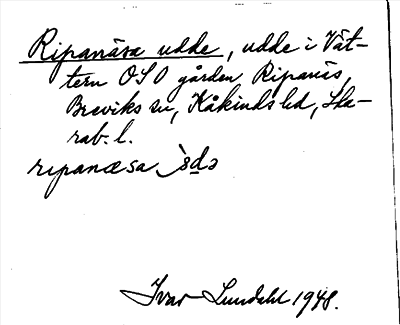 Ripanäsa udde, udde i Vät-
tern OSO gården Ripanäs,
Breviks sn, Kåkinds hd, Ska-
rab. l.
ripanæsa
Ivar Lundahl 1948.